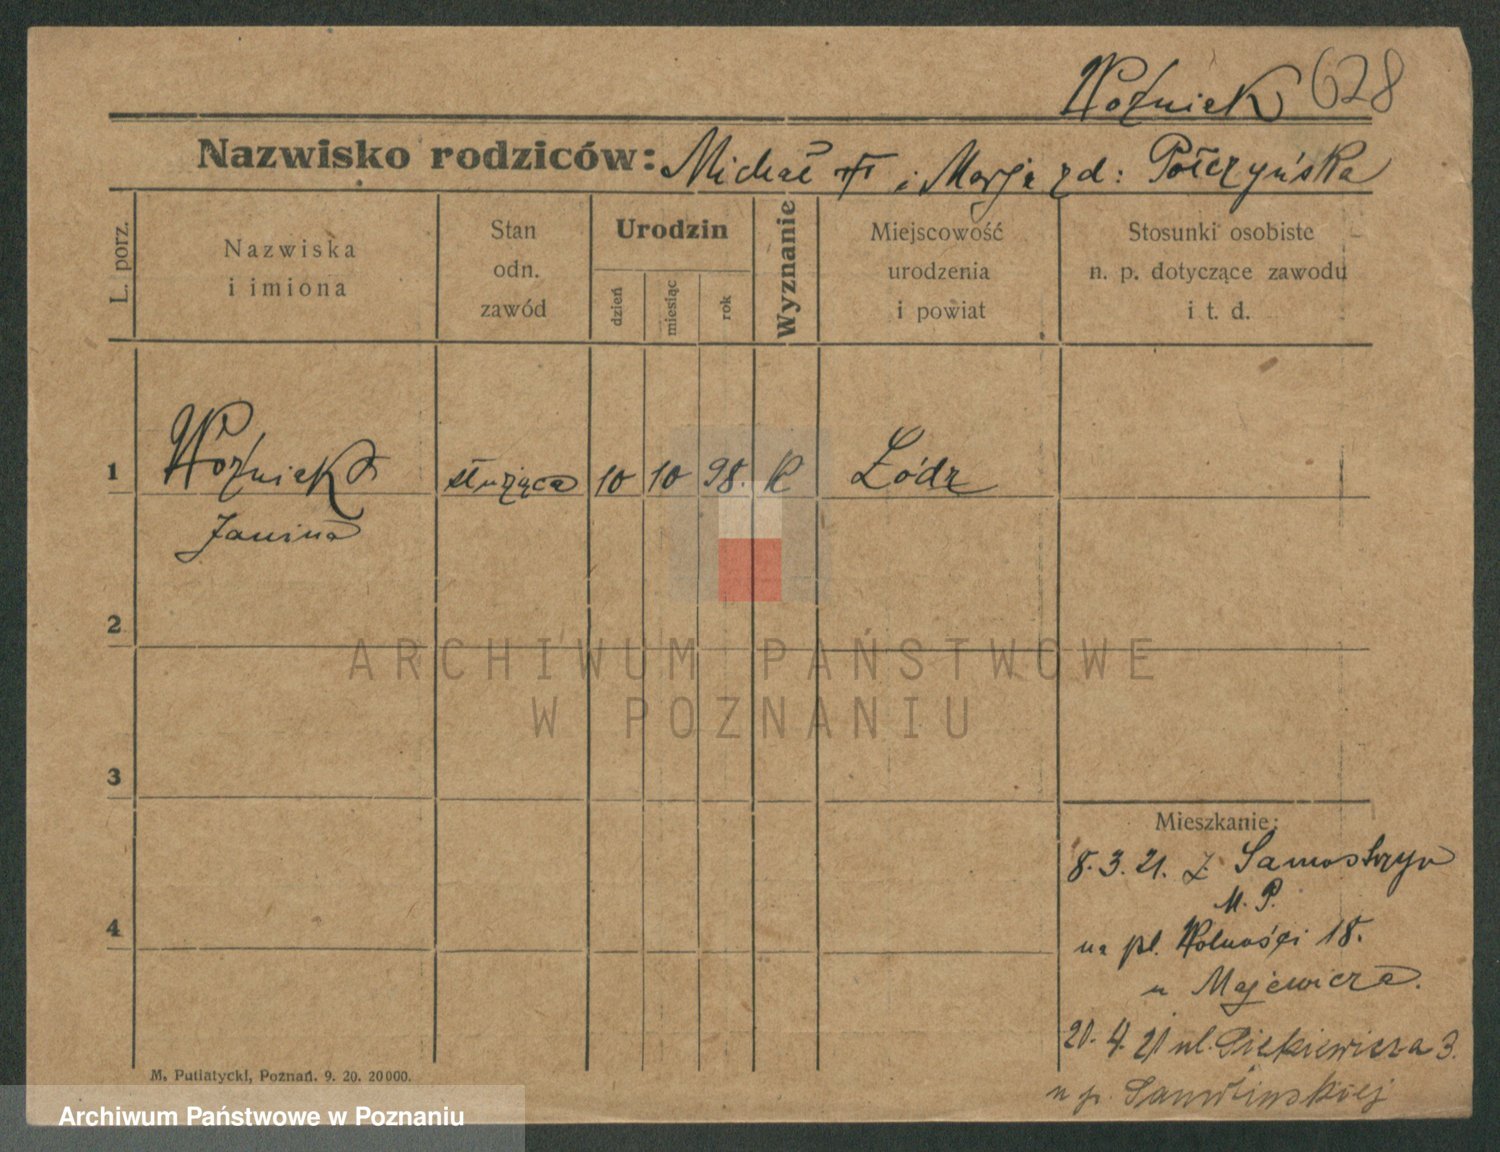 Woźniak 628
Nazwisko rodziców: Michał i Marja zd: Połczyńska
L. porz.
Nazwiska
i imiona
Stan
odn.
zawód
Urodzin
dzień
miesiąc
rok
Wyznanie
Miejscowość
urodzenia
i powiat
Stosunki osobiste
n. p. dotyczące zawodu
i t. d.
1 Woźniak służąca 10 10 98. k Łódz
Janina
2
3
4
Mieszkanie:
8.3.21. z Samostrzyn
M. P.
na pl. Wolności 18.
u Majewicza.
20. 4. 21 ul. 3.
u p.
M. Putiatycki, Poznań. 9. 20. 20000.
ARCHIWUM PAŃSTWOWE
W POZNANIU
Archiwum Państwowe w Poznaniu